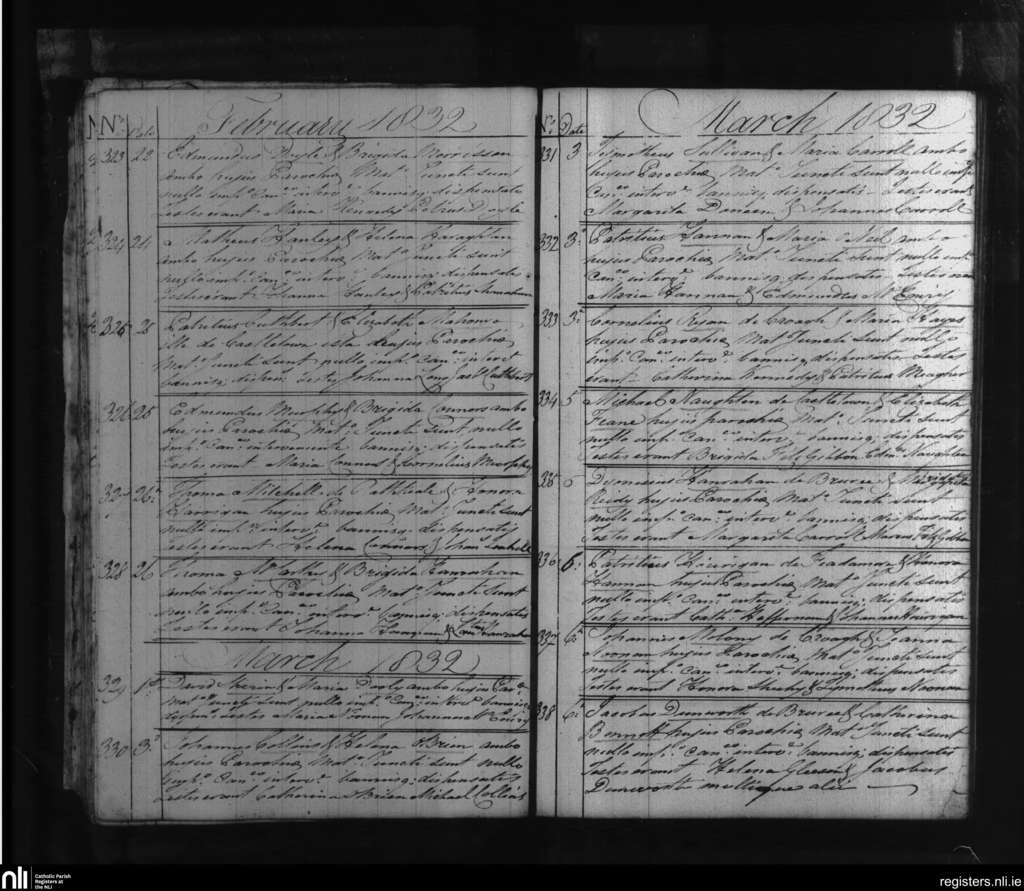 No. Date February 1832
323 22 Edmundus Doyle & Brigida Morrisson
ambo hujus Parochiæ Mato. Juncti sunt
nullo impo. Cano. intervo. bannisq; dispensatis
testes erant Maria Kennedy & Petrus Doyle
324 24 Matheus Hanley & Helena
ambo hujus Parochiæ Mato. juncti sunt
nullo impo. Cano. intervo. bannisq; dispensatis
testes erant Joanna Hanley & Patritius
325 25 Patritius Cuthbert & Elizabeth Mahony
ille de Castletown ista hujus Parochiæ
Mato. Juncti sunt nullo impo. Cano. intervt
bannisq; dispen. testes Johanna Cuthbert
326 25 Edmundus Murphy & Brigida Connors ambo
hujus Parochiæ Mato. Juncti sunt nullo
impo. Cano. interveniente bannisq; dispensatis
Testes erant Maria Connors & Cornelius Murphy
327 26 Thoma Mitchell de & Honora
Harrigan hujus Parochiæ Mato. Juncti sunt
nullo impo. Co. intervo. bannisq; dispensatis
testes erant Helena Connors &
328 26 Thoma McCarthy & Brigida Hanrahan
ambo hujus Parochiæ Mato. Juncti sunt
nullo impo. Cano. intervo. bannisq; dispensatis
Testes erant Johanna & Hanrahan
March 1832
329 1o. David & Maria Doyly ambo hujus Paro.
Mato. Juncti sunt nullo impo. Cano. intervo. bannisq
dispens testes Maria Johannes
330 3o. Johannes Collins & Helena OBrien ambo
hujus Parochiæ Mato. Juncti sunt nullo
impo. Cano. intervo. bannisq; dispensatis
testes erant Catherina OBrien Michael Collins
No. Date March 1832
331 3 Timotheus Sullivan & Maria Carroll ambo
hujus Parochiæ Mato. Juncti sunt nullo impo.
Cano. intervo. bannisq; dispensatis Testes erant
Margarita Doneen & Johannes Carroll
332 3o. Patritius Hannan & Maria ONeil ambo
hujus Parochiæ Mato. Juncti sunt nullo impo.
Cano. intervo. bannisq; dispensatis Testes erant
Maria Hannan & Edmundus McEniry
333 3o. Cornelius Ryan de Croagh & Maria Hayes
hujus Parochiæ Mato. Juncti sunt nullo
impo. Cano. intervo. bannisq; dispensatis Testes
erant Catherina Kennedy & Patritius Meagher
334 5 Michael Naughten de Castletown & Elizabeth
hujus parochiæ Mato. Juncti sunt
nullo impo. Cano. intervo. bannisq; dispensatis
Testes erant Brigida FitzGibbon Edmo. Naughten
335 6 Dionisius Hanrahan de Bruree &
Reidy hujus Parochiæ Mato. Juncti sunt
nullo impo. Cano. intervo. bannisq; dispensatis
Testes erant Margarita Carroll Maria FitzGibbon
336 6o. Patritius Hourigan de & Honora
Hannan hujus Parochiæ Mato. Juncti sunt
nullo impo. Cano. intervo. bannisq; dispensatis
Testes erant Cath. Heffernan & Joannes Hourigan
337 6o. Johannis Molony de Croagh & Joanna
Noonan hujus Parochiæ Mato. Juncti sunt
nullo impo. Cano. intervo. bannisq; dispensatis
testes erant Honora Sheehy & Timotheus Noonan
338 6o. Jacobus Dunworth de Bruree & Catherina
Bennett hujus Parochiæ Mato. Juncti sunt
nullo impo. Cano. intervo. bannisq; dispensatis
Testes erant Helena Gleeson & Jacobus
Dunworth multique alii
nli Catholic Parish
Registers at
the NLI
registers.nli.ie